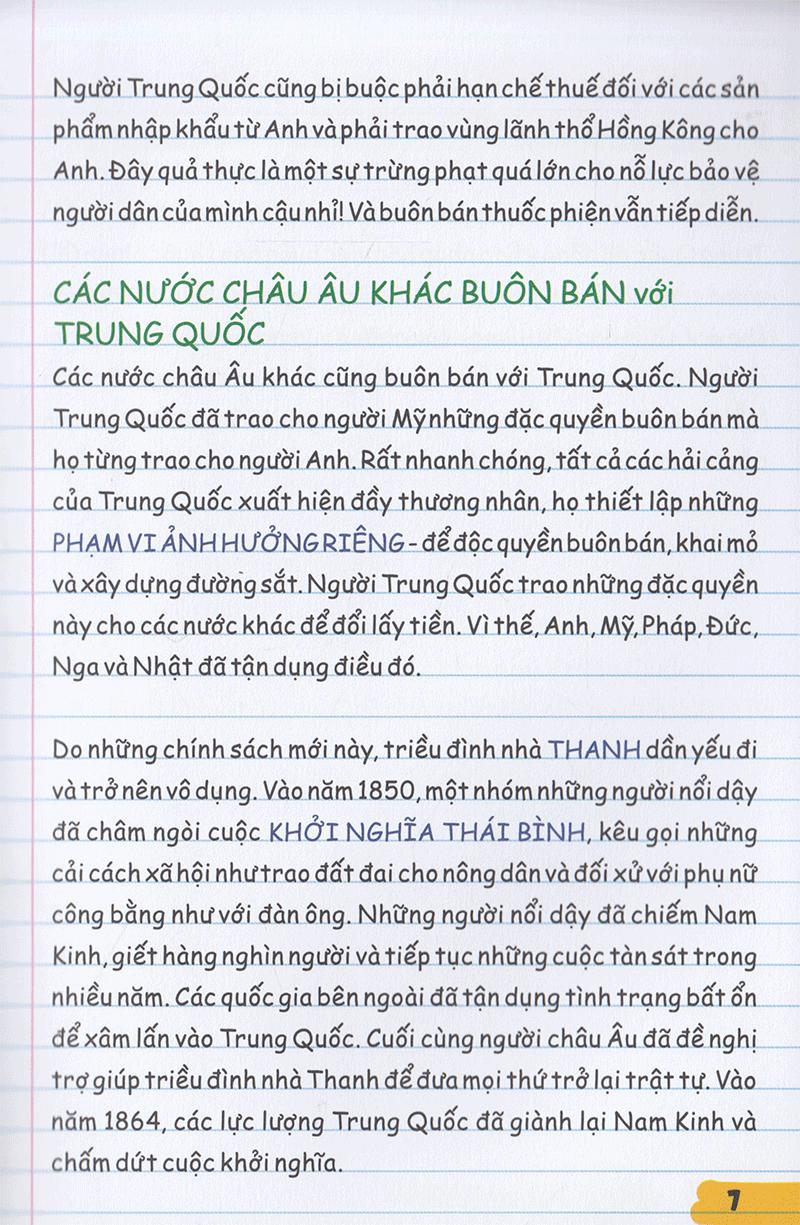 Người Trung Quốc cũng bị buộc phải hạn chế thuế đối với các sản
phẩm nhập khẩu từ Anh và phải trao vùng lãnh thổ Hồng Kông cho
Anh. Đây quả thực là một sự trừng phạt quá lớn cho nỗ lực bảo vệ
người dân của mình cậu nhỉ! Và buôn bán thuốc phiện vẫn tiếp diễn.
CÁC NƯỚC CHÂU ÂU KHÁC BUÔN BÁN với
TRUNG QUỐC
Các nước châu Âu khác cũng buôn bán với Trung Quốc. Người
Trung Quốc đã trao cho người Mỹ những đặc quyền buôn bán mà
họ từng trao cho người Anh. Rất nhanh chóng, tất cả các hải cảng
của Trung Quốc xuất hiện đầy thương nhân, họ thiết lập những
PHẠM VI ẢNH HƯỞNG RIÊNG - để độc quyền buôn bán, khai mỏ
và xây dựng đường sắt. Người Trung Quốc trao những đặc quyền
này cho các nước khác để đổi lấy tiền. Vì thế, Anh, Mỹ, Pháp, Đức,
Nga và Nhật đã tận dụng điều đó.
Do những chính sách mới này, triều đình nhà THANH dần yếu đi
và trở nên vô dụng. Vào năm 1850, một nhóm những người nổi dậy
đã châm ngòi cuộc KHỞI NGHĨA THÁI BÌNH, kêu gọi những
cải cách xã hội như trao đất đai cho nông dân và đối xử với phụ nữ
công bằng như với đàn ông. Những người nổi dậy đã chiếm Nam
Kinh, giết hàng nghìn người và tiếp tục những cuộc tàn sát trong
nhiều năm. Các quốc gia bên ngoài đã tận dụng tình trạng bất ổn
để xâm lấn vào Trung Quốc. Cuối cùng người châu Âu đã đề nghị
trợ giúp triều đình nhà Thanh để đưa mọi thứ trở lại trật tự. Vào
năm 1864, các lực lượng Trung Quốc đã giành lại Nam Kinh và
chấm dứt cuộc khởi nghĩa.
7